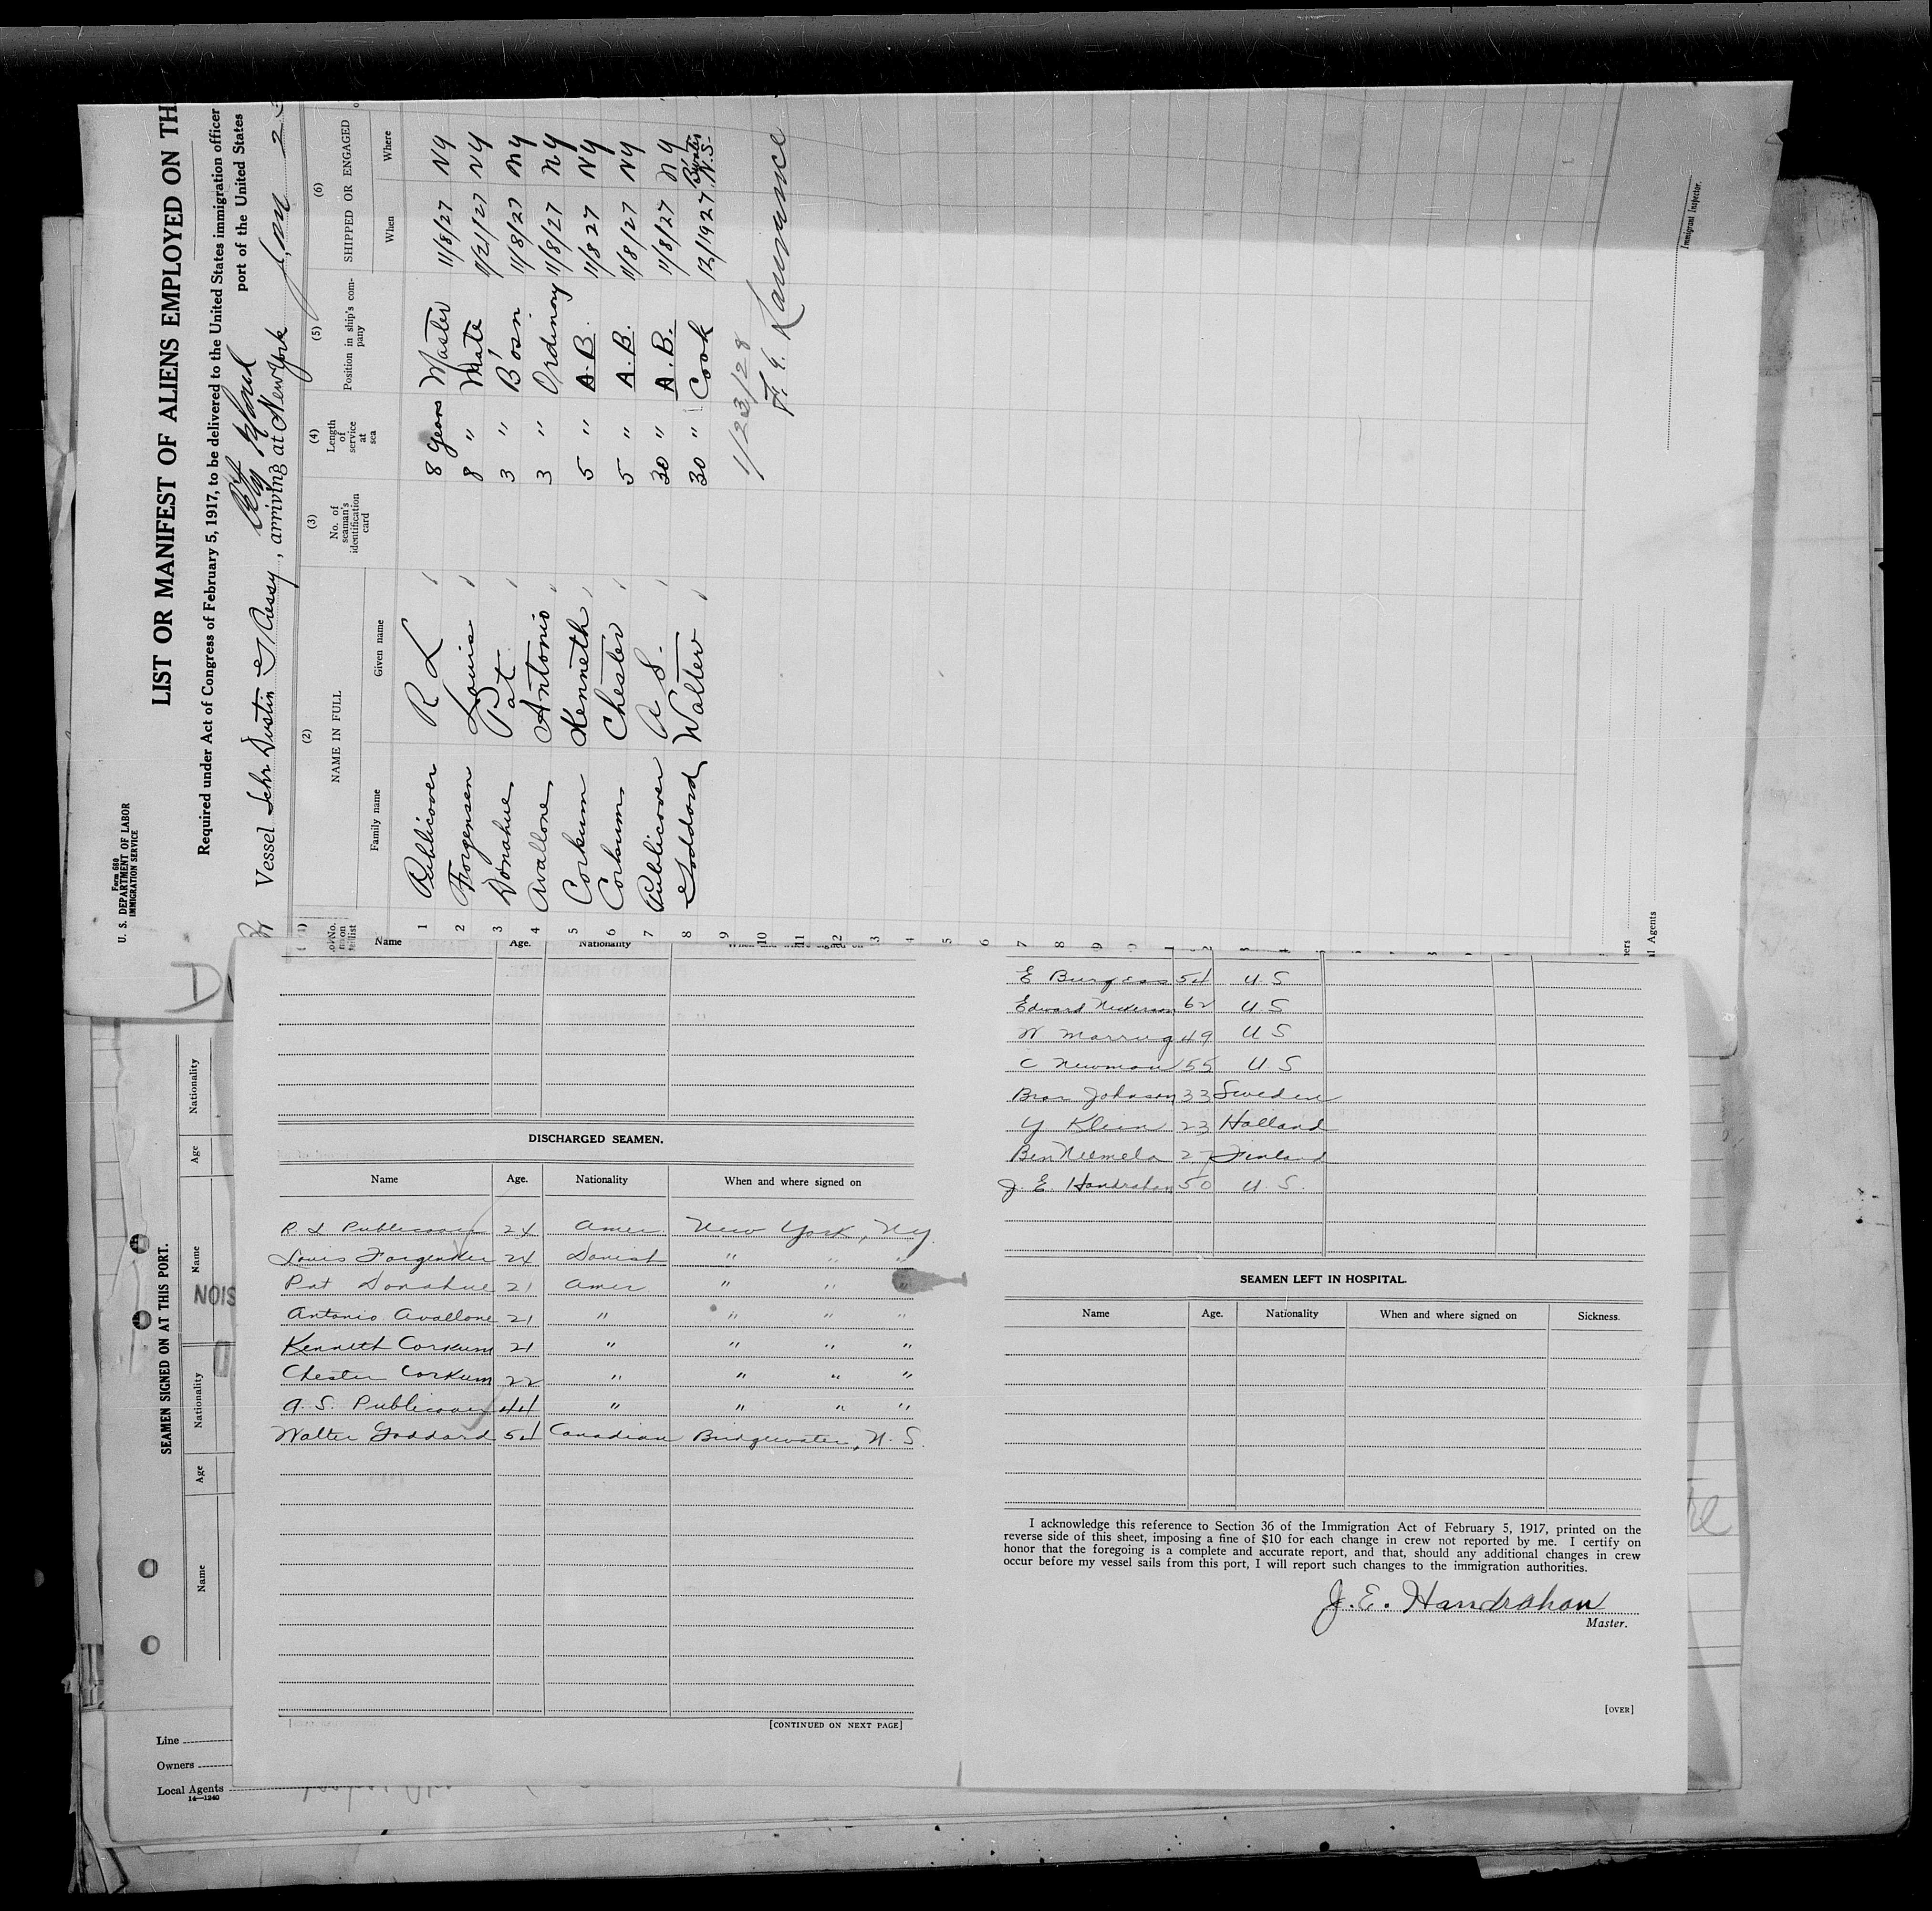 Form 680
U. S. DEPARTMENT OF LABOR
IMMIGRATION SERVICE
LIST OR MANIFEST OF ALIENS EMPLOYED ON TH
Required under Act of Congress of February 5, 1917, to be delivered to the United States immigration officer
port of the United States
Vessel Schr Dustin G Cressy, arriving at New York Jan 23
(2) (3) (4) (5) (6)
NAME IN FULL No. of seaman's identification card Length of service at sea Position in ship's company SHIPPED OR ENGAGED
Family name Given name When Where
1 Publicover R L 8 years Master 11/8/27 NY
2 Jorgensen Louis 8 " Mate 11/21/27 NY
3 Donahue Pat 3 " Bo'sn 11/8/27 NY
4 Avallone Antonio 3 " Ordinary 11/8/27 NY
5 Corkum Kenneth 5 " A.B. 11/8 27 NY
6 Corkum Chester 5 " A.B. 11/8/27 NY
7 Publicover A S. 30 " A.B. 11/8/27 NY
8 Goddard Walter 30 " Cook 12/1927 N.S.
9
10
11
12
1/23/28
Immigrant Inspector.
Agents
Name Age. Nationality
DISCHARGED SEAMEN.
Name Age. Nationality When and where signed on
R. L Publicover 24 Amer. New York, NY
Louis Jorgensen 24 Danish " " "
Pat Donahue 21 Amer " " "
Antonio Avallone 21 " " " "
Kenneth Corkum 21 " " " "
Chester Corkum 22 " " " "
A. S. Publicover 44 " " " "
Walter Goddard 54 Canadian Bridgewater, N. S.
[CONTINUED ON NEXT PAGE]
E Burgess 54 U. S
Edward Nickerson 62 U S
W 49 U S
C Newman 55 U S
Johnson 33 Sweden
Y Klein 23 Holland
Ben Niemela 27 Finland
J. E. Handrahan 50 U. S.
SEAMEN LEFT IN HOSPITAL.
Name Age. Nationality When and where signed on Sickness.
I acknowledge this reference to Section 36 of the Immigration Act of February 5, 1917, printed on the
reverse side of this sheet, imposing a fine of $10 for each change in crew not reported by me. I certify on
honor that the foregoing is a complete and accurate report, and that, should any additional changes in crew
occur before my vessel sails from this port, I will report such changes to the immigration authorities.
J. E. Handrahan
Master.
[OVER]
SEAMEN SIGNED ON AT THIS PORT.
Name Age Nationality Name Age Nationality
Line
Owners
Local Agents
14—1240